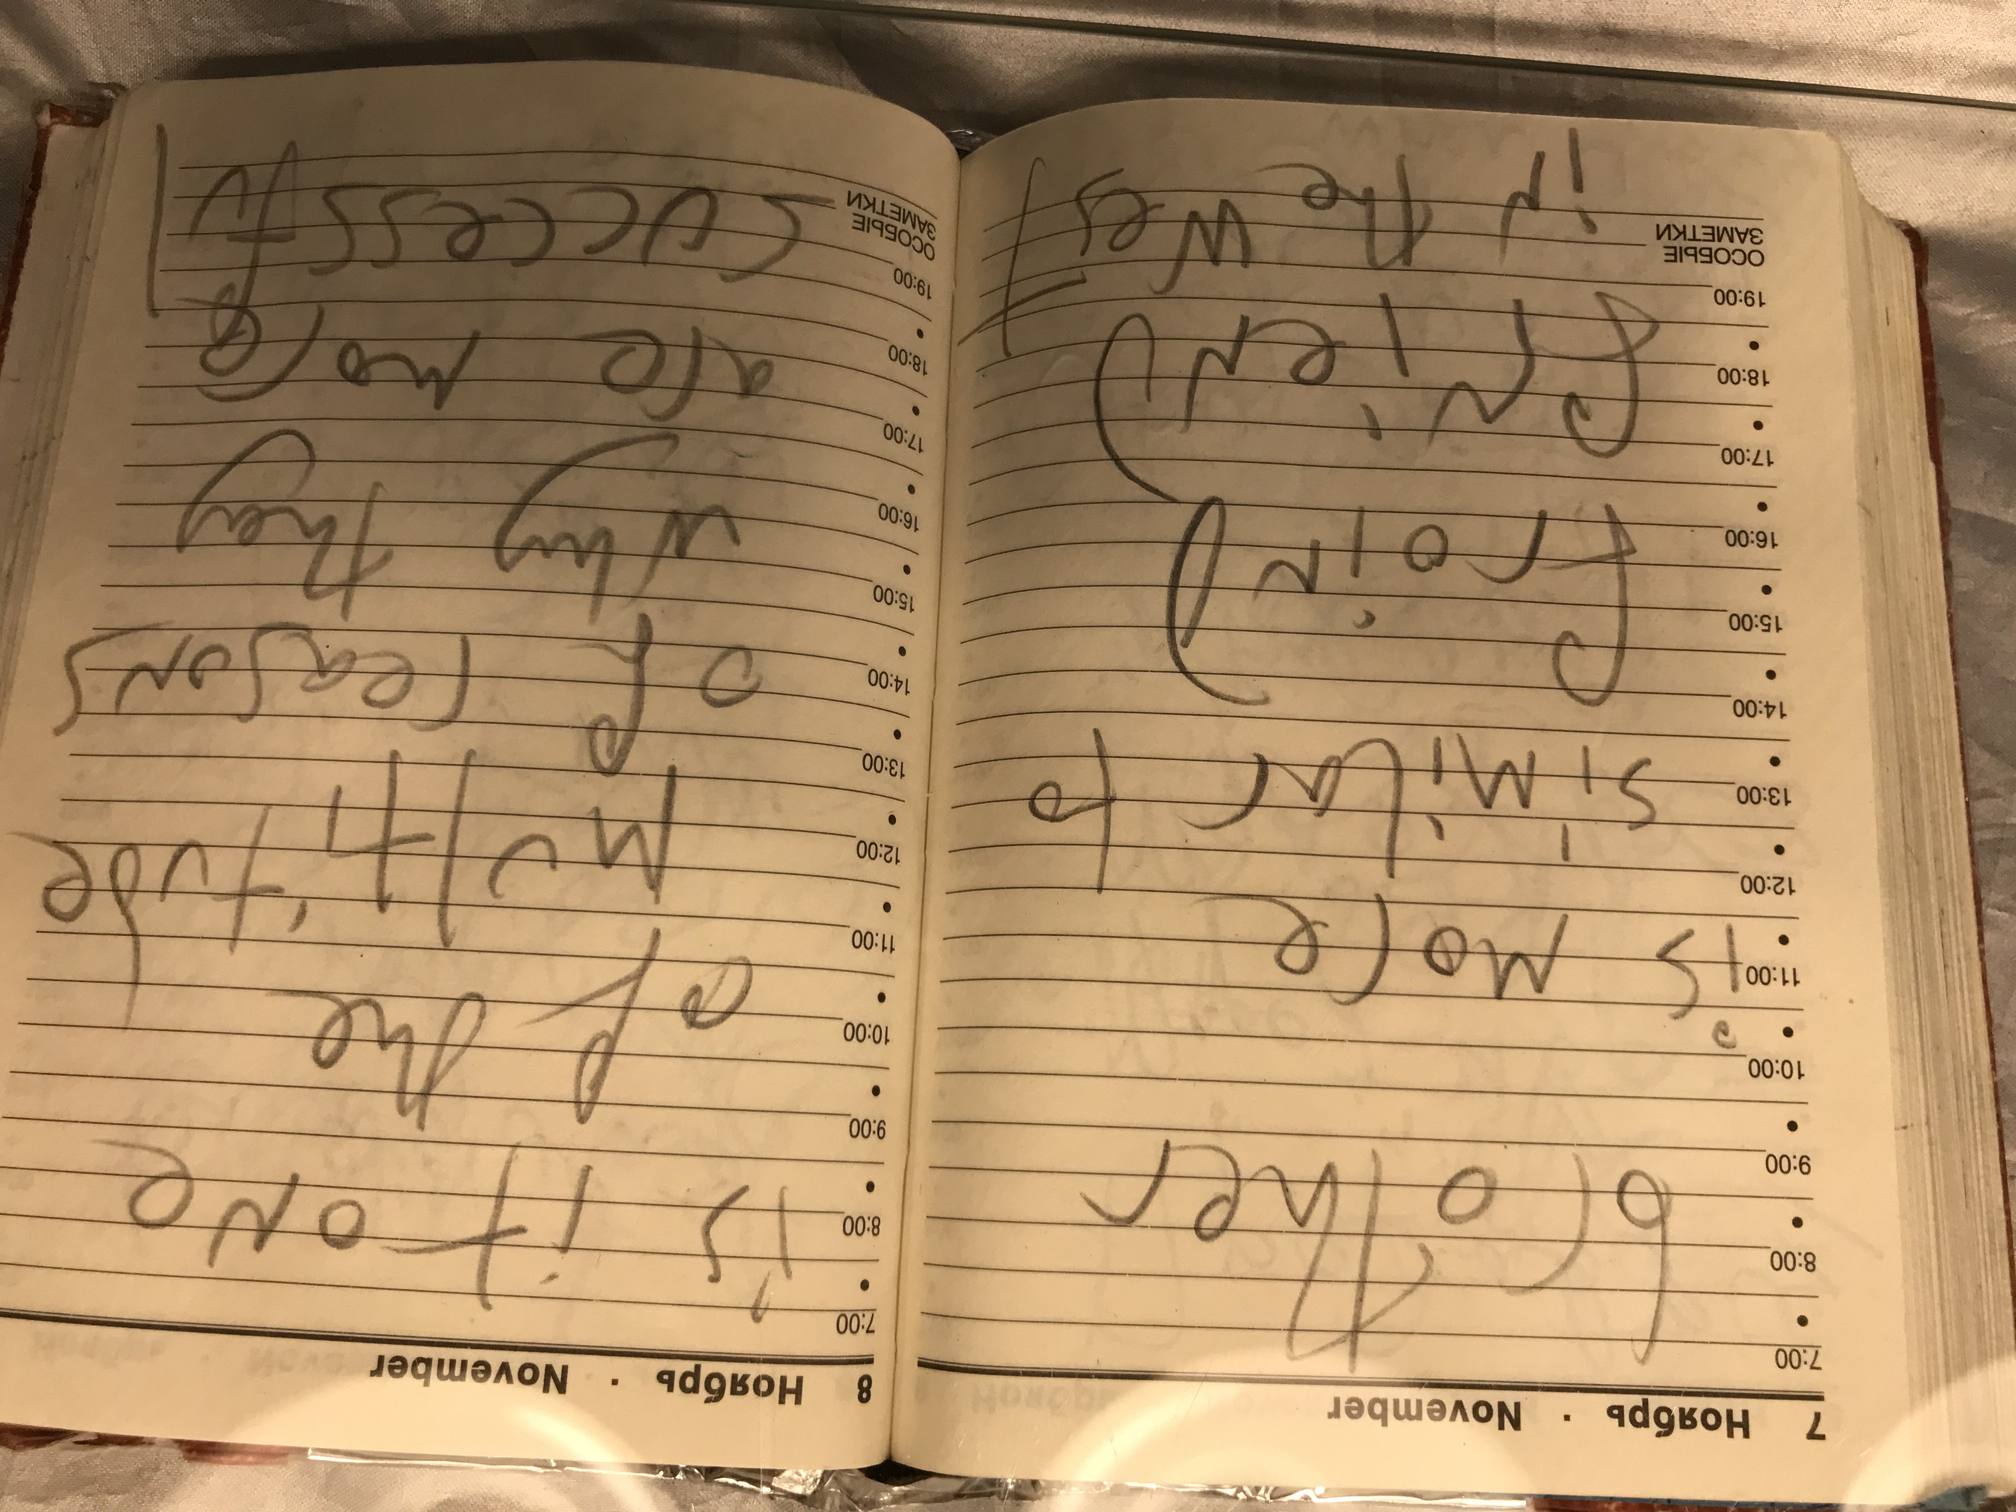 7 Ноябрь · November
7:00
8:00
9:00
10:00
11:00
12:00
13:00
14:00
15:00
16:00
17:00
18:00
19:00
ОСОБЫЕ
ЗАМЕТКИ
brother
is more
similar to
froind
friend
in the West
8 Ноябрь · November
7:00
8:00
9:00
10:00
11:00
12:00
13:00
14:00
15:00
16:00
17:00
18:00
19:00
ОСОБЫЕ
ЗАМЕТКИ
is it one
of the
Multitude
of reasons
why they
are more
successful